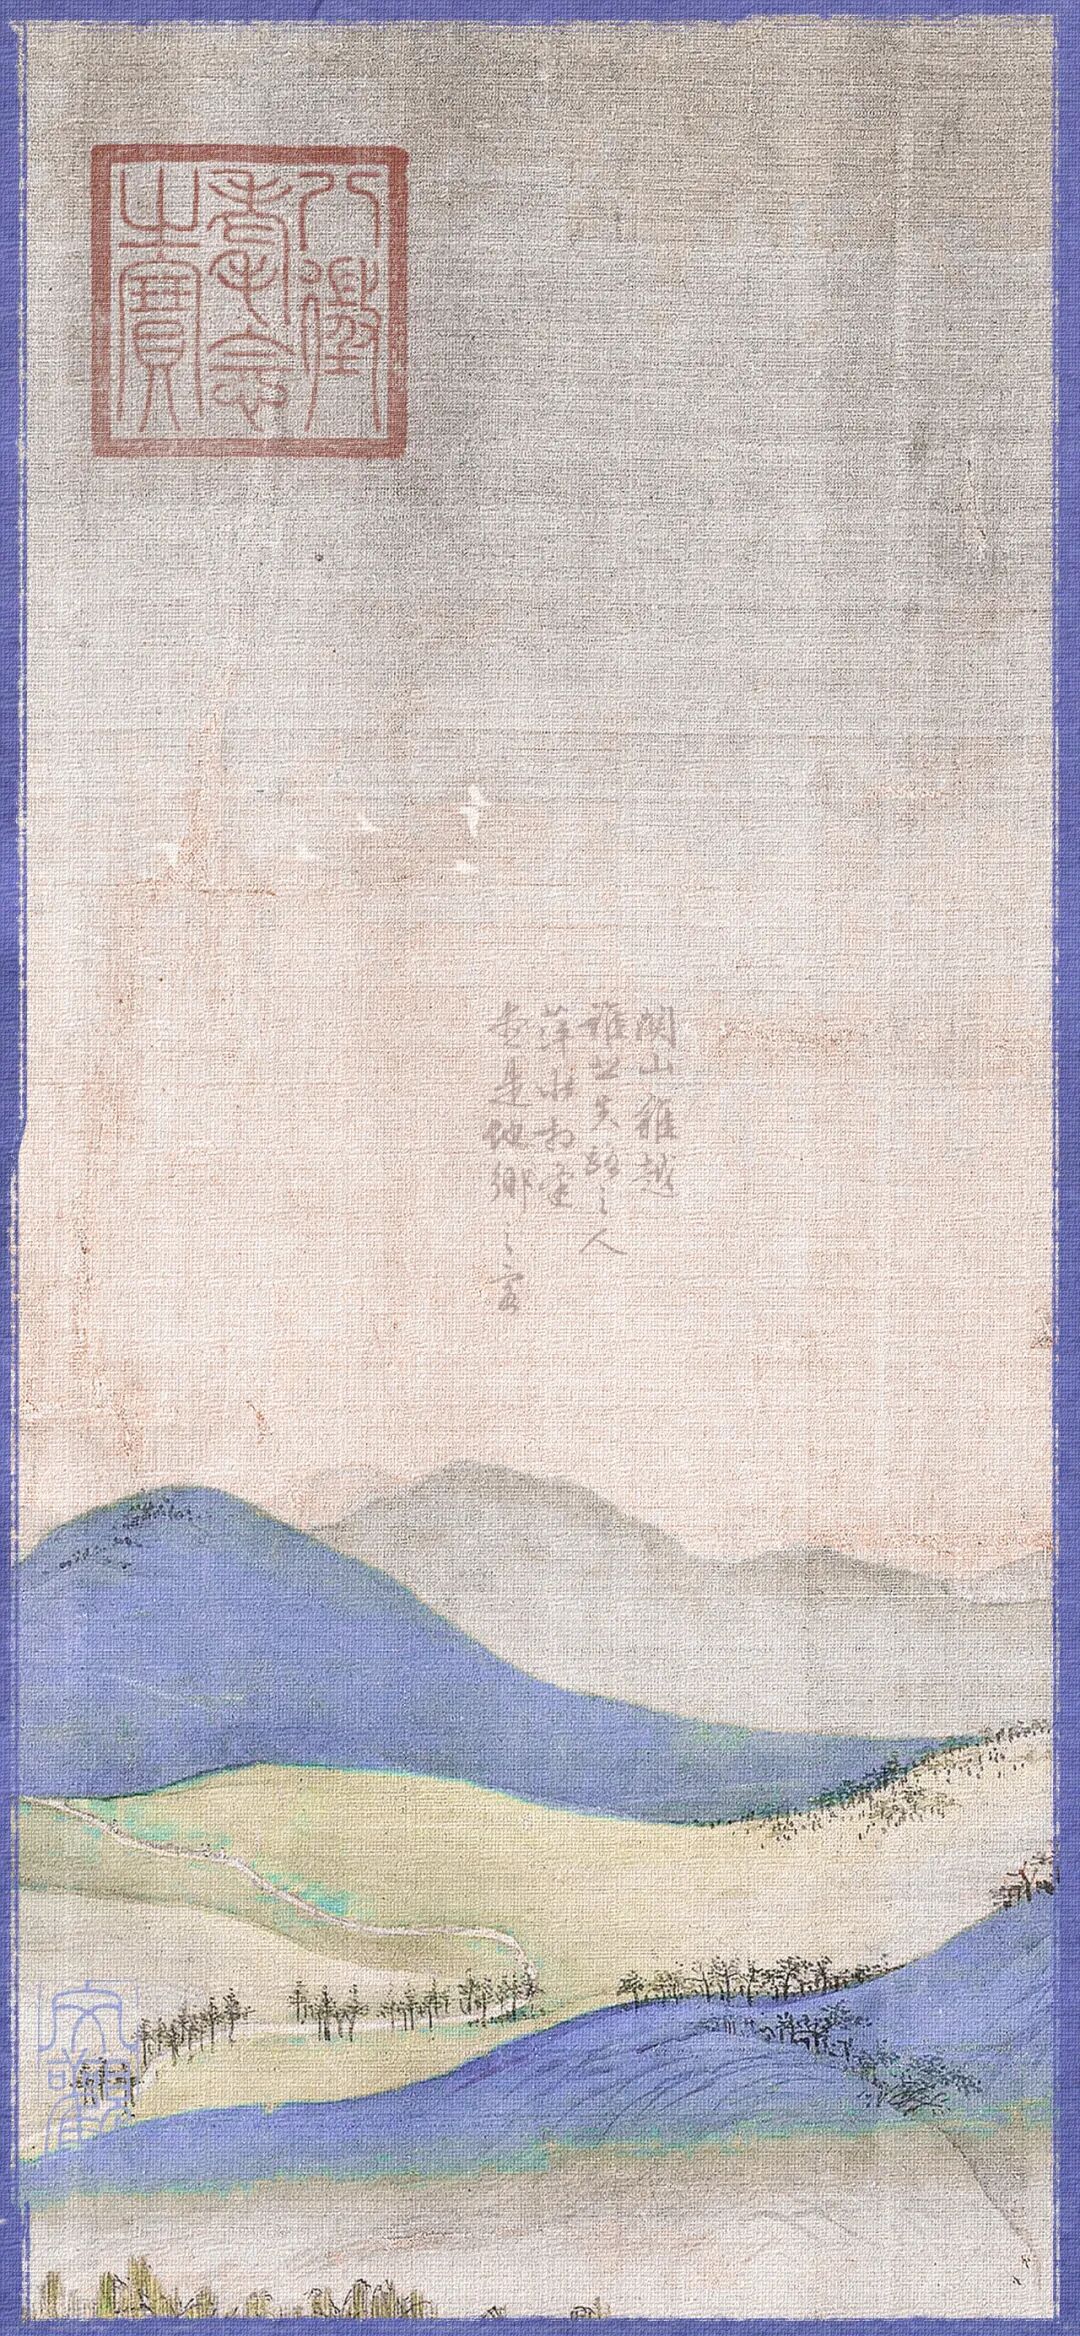 八徵
耄念
之寶
關山難越
誰悲失路之人
萍水相逢
盡是他鄉之客